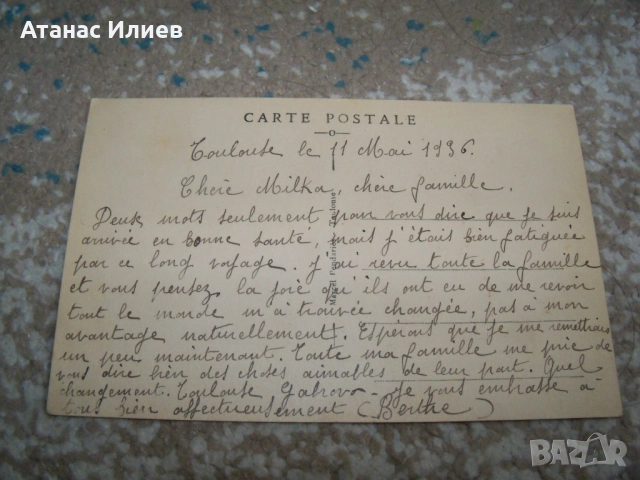 Атанас Илиев
CARTE POSTALE
Toulouse le 11 Mai 1936.
Chère Milka, chère famille.
Deux mots seulement pour vous dire que je suis
arrivée en bonne santé, mais j'étais bien fatiguée
par ce long voyage. J'ai revu toute la famille
et vous pensez la joie qu'ils ont eu de me revoir
tout le monde m'a trouvée changée, pas à mon
avantage naturellement. Espérons que je me remettrais
un peu maintenant. Toute ma famille me prie de
vous dire bien des choses aimables de leur part. Quel
changement. Toulouse Gabrovo - Je vous embrasse à
tous bien affectueusement (Berthe)
Toulouse
BAZAR